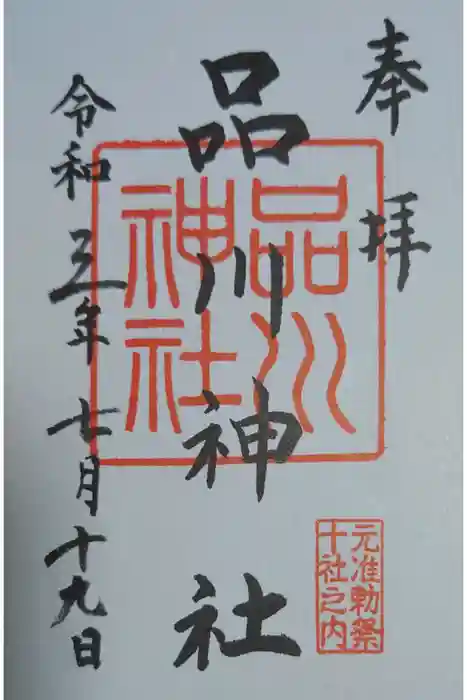 奉拝
品川神社
令和五年七月十九日
品川
神社
元准勅祭
十社之内